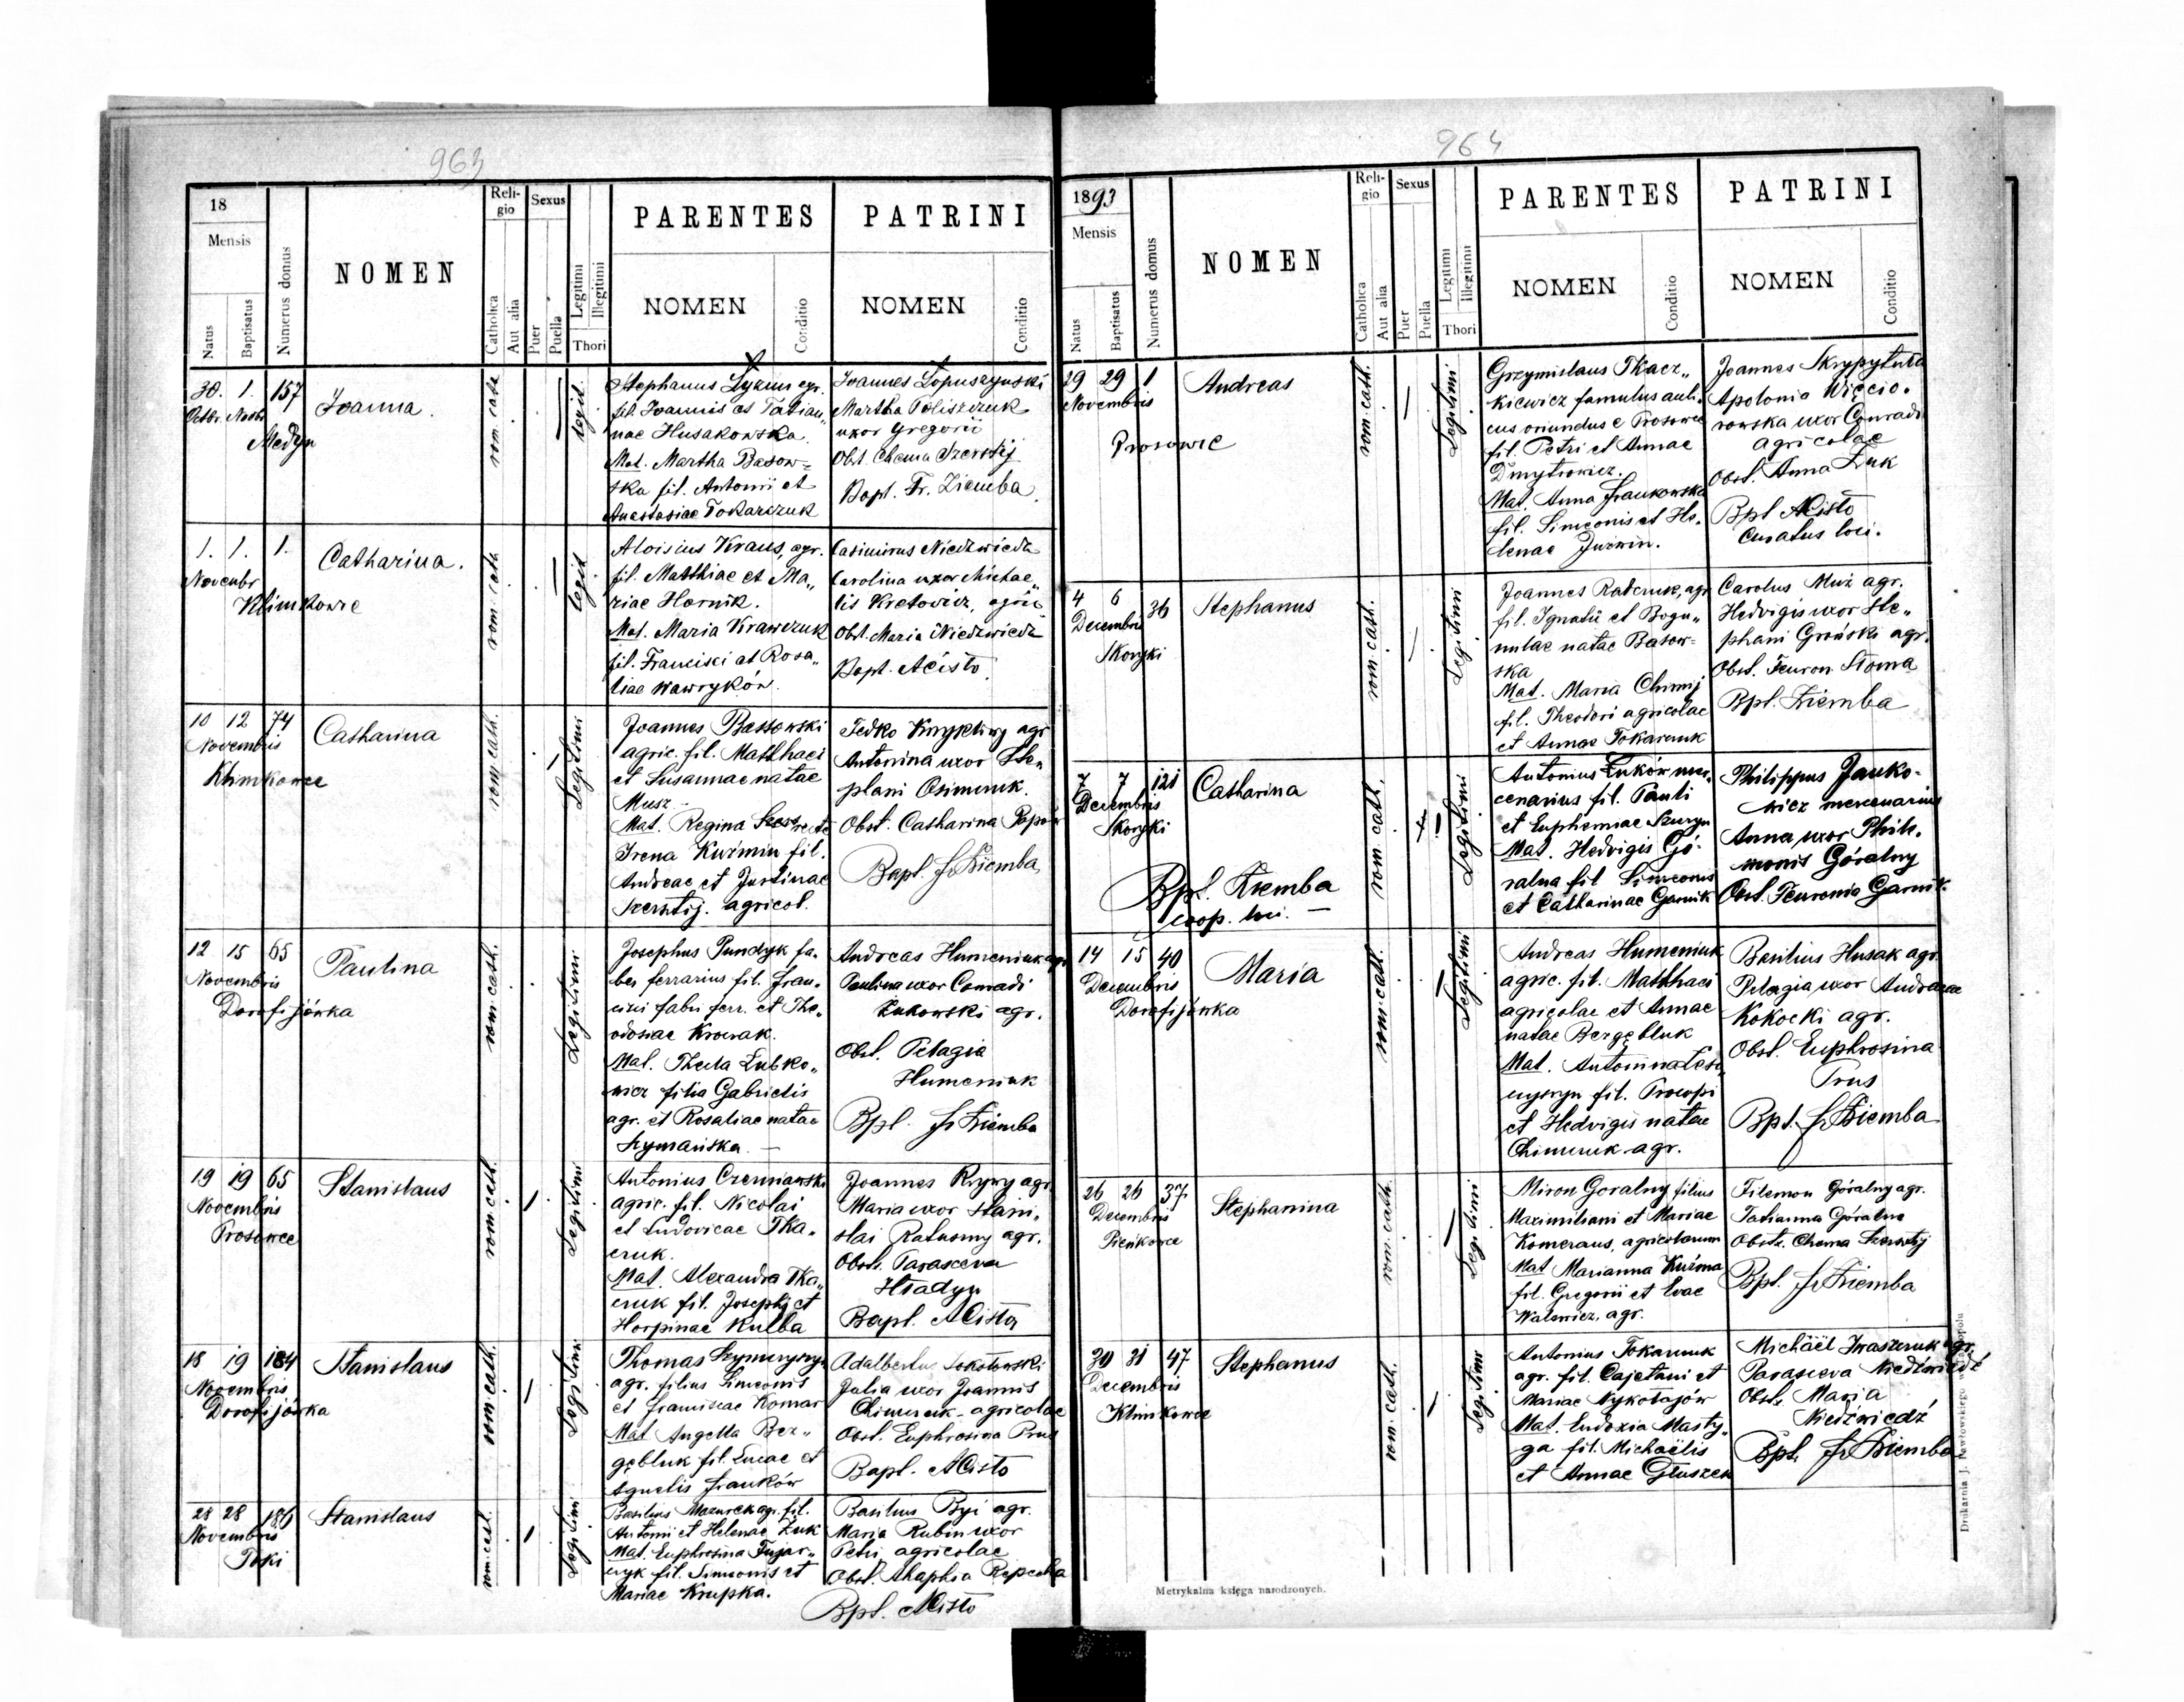 963
18
Mensis
Natus
Baptisatus
Numerus domus
NOMEN
Religio
Catholica
Aut alia
Sexus
Puer
Puella
Legitimi
Illegitimi
Thori
PARENTES
NOMEN
Conditio
PATRINI
NOMEN
Conditio
30. 1. 157
Octbr. Novbr
Medyn
Joanna.
rom. cath
legit.
Stephanus Łyzun agr.
fil. Joannis et Tatian„
nae Husakowska.
Mat. Martha Basow=
ska fil. Antonii et
Anastasiae Tokarczuk
Joannes Łopuszynski
Martha Poliszczuk
uxor Gregorii
Obst. Chema Szerstij
Bapt. Fr. Ziemba.
1. 1. 1.
Novembr
Klimkowce
Catharina.
rom. cath
legit
Aloisius Kraus, agr.
fil. Matthiae et Ma„
riae Hornik.
Mat. Maria Krawczuk
fil. Francisci et Rosa„
liae Wawryków.
Casimirus Niedzwiedz
Carolina uxor Michae„
lis Kretowicz, agric
Obst. Maria Niedzwiedz
Bapt. ACisło.
10 12 74
Novembris
Klimkowce
Catharina
rom. cath.
Legitimi
Joannes Bassowski
agric. fil. Matthaei
et Susannae natae
Musz.
Mat. Regina recte
Irena Kuźmin fil.
Andreae et Justinae
Szerstij. agricol.
Fedko agr
Antonina uxor Ste„
phani Osimczuk.
Obst. Catharina Popow
Bapt. fr Ziemba
12 15 65
Novembris
Dorofijówka
Paulina
rom. cath.
Legitimi
Josephus Pundyk fa„
ber ferrarius fil. Fran„
cisci fabri ferr. et The„
odosiae Krowak.
Mat. Thecla Lubko„
wicz filia Gabrielis
agr. et Rosaliae natae
Szymańska.
Andreas Humeniuk agr
Paulina uxor Conradi
Żukowski agr.
Obst. Pelagia
Humeniuk
Bpt. fr Ziemba
19 19 65
Novembris
Prosowce
Stanislaus
rom. cath.
Legitimi
Antonius Czerniawski
agric. fil. Nicolai
et Ludovicae Tka„
czuk.
Mat. Alexandra Tka„
czuk fil. Josephi et
Horpinae Kulba
Joannes Krywy agr
Maria uxor Stani„
slai Ratuszny agr.
Obst. Parasceva
Hładyn
Bapt. ACisło
18 19 184
Novembris
Dorofijówka
Stanislaus
rom. cath.
Legitimi
Thomas Szymczyszyn
agr. filius Simeonis
et Franciscae Komar
Mat Angella Bez„
gębluk fil. Lucae et
Agnetis Franków
Adalbertus Sokołowski
Julia uxor Joannis
Chimczuk - agricolae
Obst. Euphrosina Prus
Bapt. ACisło
28 28 186
Novembris
Toki
Stanislaus
rom. cath.
Legitimi
Basilius Mazurek agr. fil.
Antonii et Helenae Żuk
Mat. Euphrosina Fujar„
czyk fil. Simeonis et
Mariae Krupka.
Basilius Byi agr.
Maria Rubin uxor
Petri agricolae
Obst. Ahaphia Repecka
Bpt. ACisło
964
1893
Mensis
Natus
Baptisatus
Numerus domus
NOMEN
Religio
Catholica
Aut alia
Sexus
Puer
Puella
Legitimi
Illegitimi
Thori
PARENTES
NOMEN
Conditio
PATRINI
NOMEN
Conditio
29 29 1
Novembris
Prosowce
Andreas
rom. cath.
Legitimi
Grzymislaus Tkacz„
kiewicz famulus auli„
cus oriundus e Prosowce
fil. Petri et Annae
Dmytrowicz.
Mat. Anna Frankowska
fil. Simeonis et He„
lenae Juzwin.
Joannes Skrypytuła
Apolonia Więcio„
rowska uxor Conradi
agricolae
Obst. Anna Żuk
Bpt ACisło
Curatus loci.
4 6 36
Decembris
Skoryki
Stephanus
rom. cath.
Legitimi
Joannes Ratczuk, agr
fil. Ignatii et Bogu„
milae natae Basow=
ska
Mat. Maria Chomij
fil. Theodori agricolae
et Annae Tokarczuk
Carolus Muż agr.
Hedvigis uxor Ste„
phani Groński agr.
Obst. Fewron Słoma
Bpt. Ziemba
7 7 121
Decembris
Skoryki
Bpt. Ziemba
coop. loci.
Catharina
rom. cath.
Legitimi
Antonius Łuków mer„
cenarius fil. Pauli
et Euphemiae Szuryn
Mat. Hedvigis Gó„
ralna fil Simeonis
et Catharinae Garnik
Philippus Janko-
wicz mercenarius
Anna uxor Phile„
monis Góralny
Obst. Fewronia Garnik
14 15 40
Decembris
Dorofijówka
Maria
rom. cath.
Legitimi
Andreas Humeniuk
agric. fil. Matthaei
agricolae et Annae
natae Bezgębluk
Mat. Antonina
fil. Procopi
et Hedvigis natae
Chimczuk agr.
Basilius Husak agr.
Pelagia uxor Andreae
Kokocki agr.
Obst. Euphrosina
Prus
Bpt. fr Ziemba
26 26 37
Decembris
Pieńkowce
Stephanina
rom. cath.
Legitimi
Miron Goralny filius
Maximiliani et Mariae
Komeraus, agricolarum
Mat Marianna Kuźma
fil. Gregorii et Evae
Walewicz, agr.
Filemon Góralny agr.
Tatianna Góralna
Obst. Chema Szerstij
Bpt. fr Ziemba
30 31 47
Decembris
Klimkowce
Stephanus
rom. cath.
Legitimi
Antonius Tokarczuk
agr. fil. Cajetani et
Mariae Nykołajów
Mat. Eudoxia Masty„
ga fil. Michaëlis
et Annae Głuszek
Michaël Iwaszczuk agr.
Parasceva Niedźwiedź
Obst. Maria
Niedźwiedź
Bpt. fr Ziemba
Metrykalna księga narodzonych.
Drukarnia J. Pawłowskiego